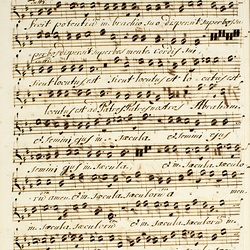 fecit potentiam in brachio suo dispersit superbos
superbos dispersit superbos mente cordis sui
Sicut locutus est Sicut locutus est lo cutus est
locutus est ad Patres Patres nostros Abraham
et semini ejus in saecula et semini ejus
semini ejus in saecula et in saecula saeculo
rum amen et in saecula saeculorum a men
in saecula saeculorum et in saecula saeculorum in